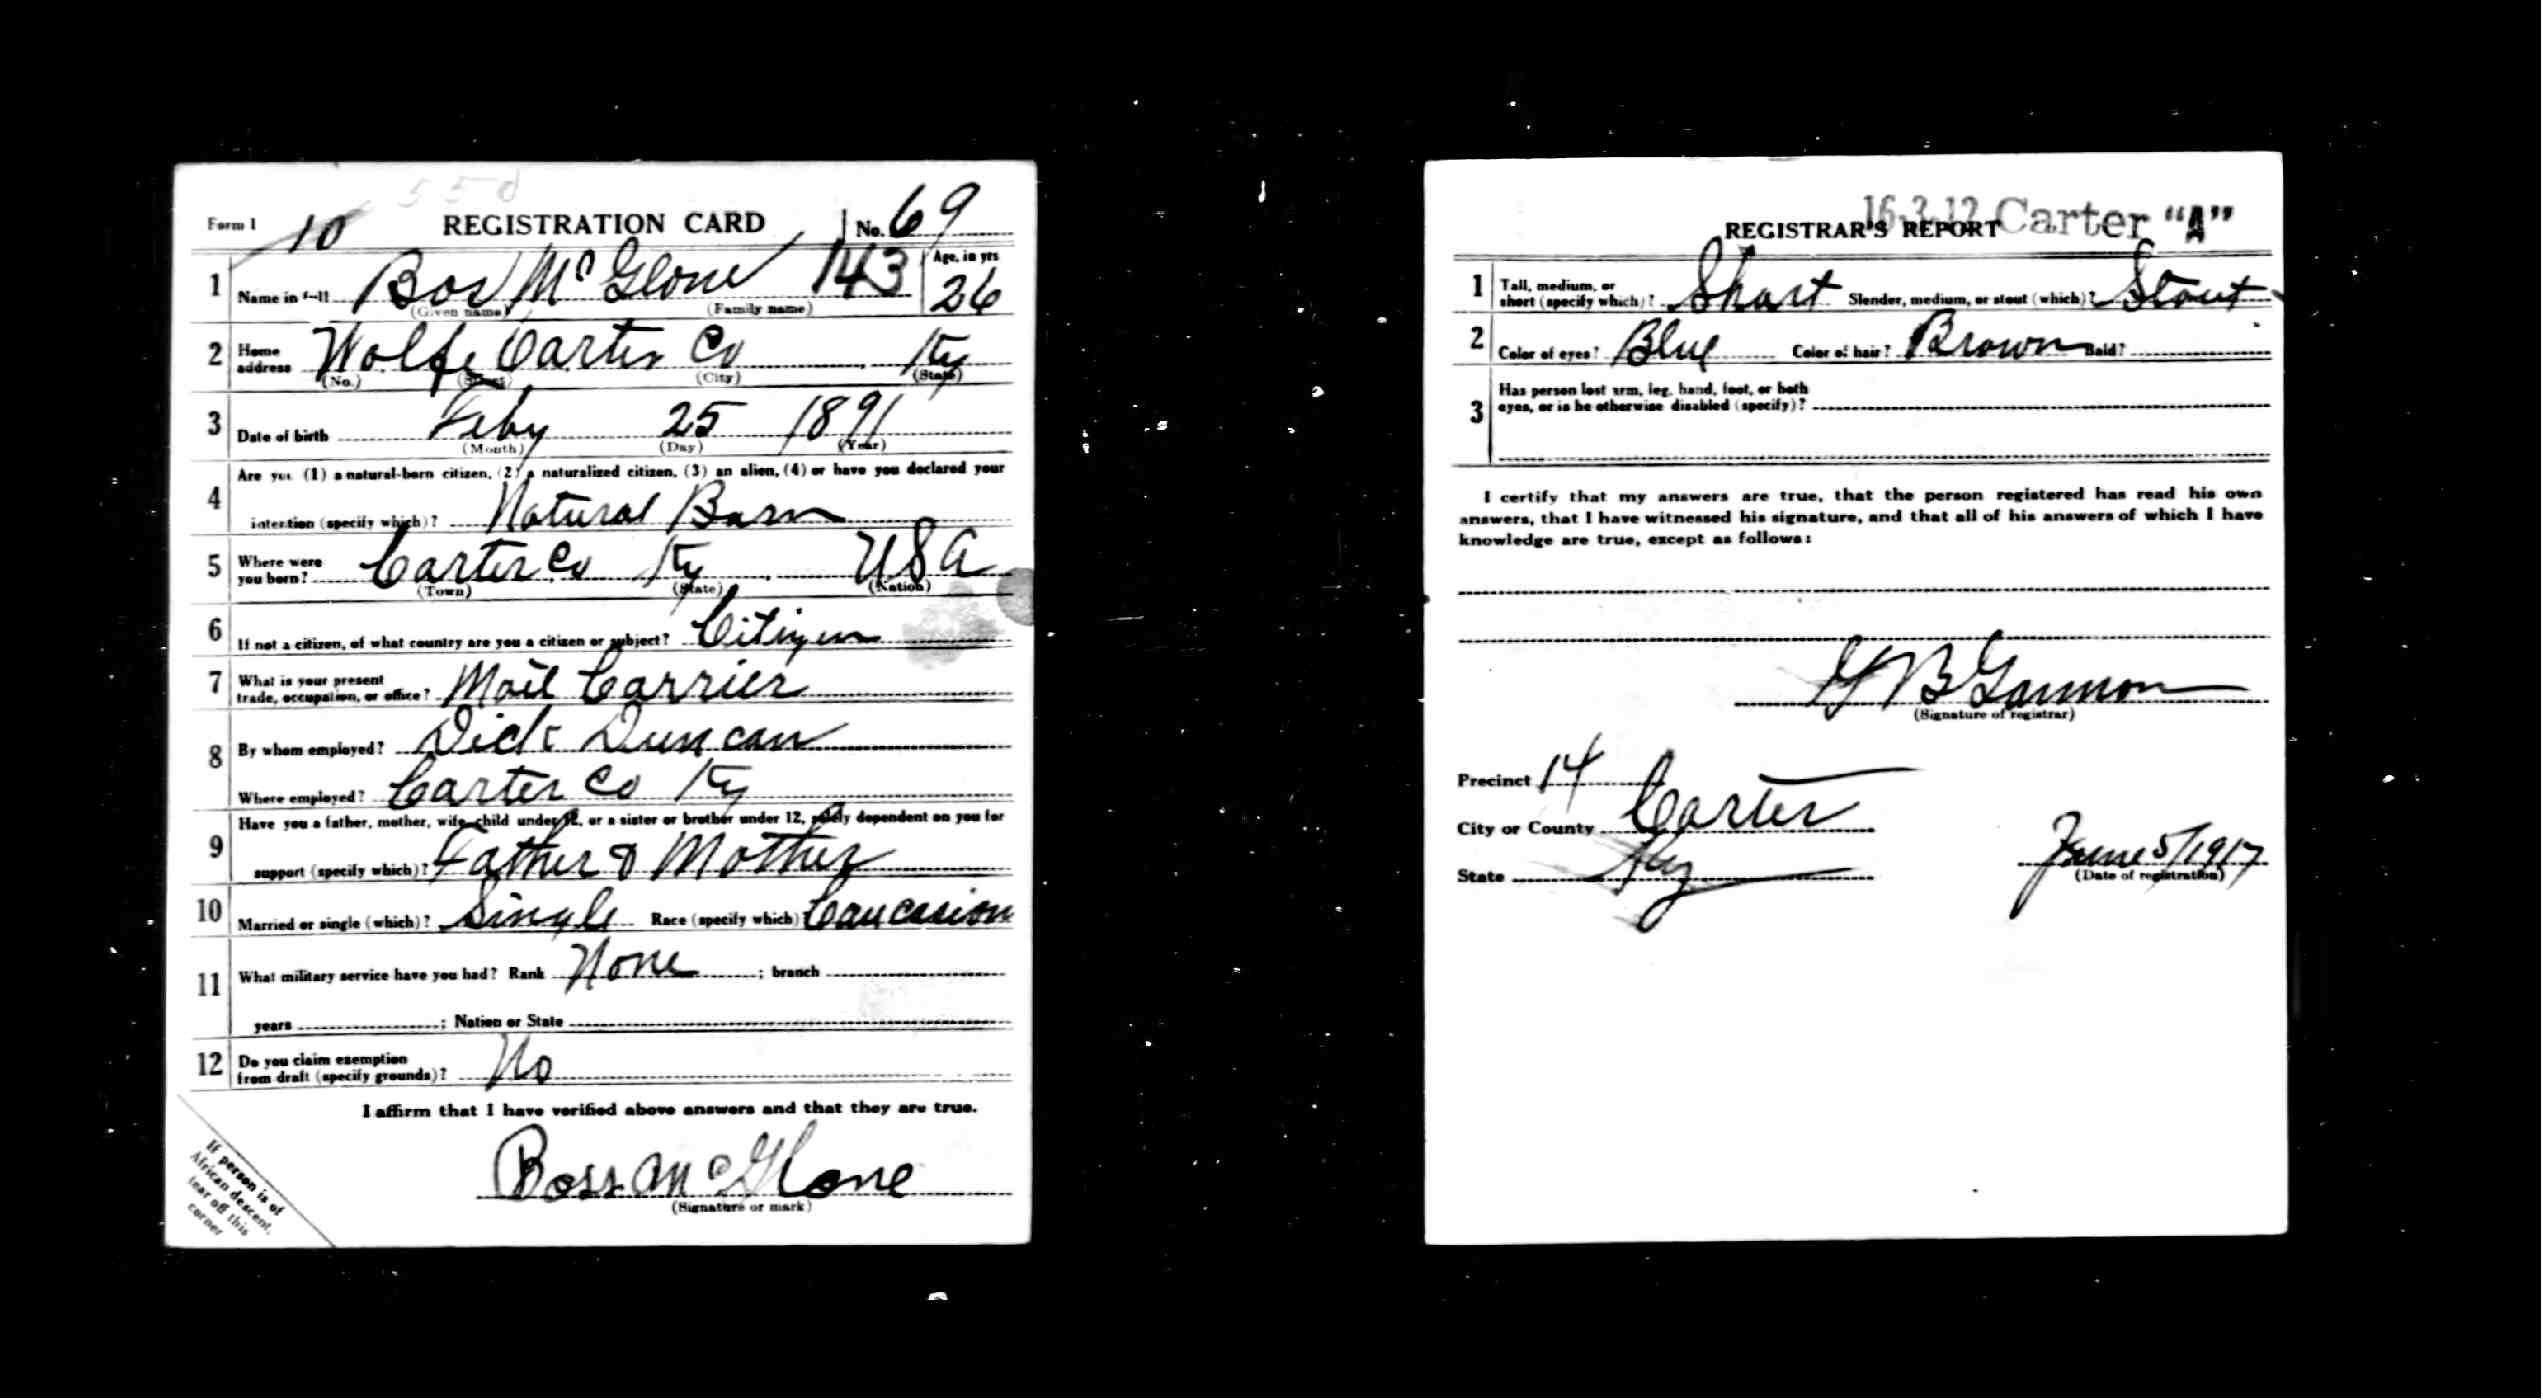 558
Form 1 10 REGISTRATION CARD No. 69
1 Name in full Bos McGlone 143 Age, in yrs 26
(Given name) (Family name)
2 Home address Wolfe Carter Co Ky
(No.) (Street) (City) (State)
3 Date of birth Feby 25 1891
(Month) (Day) (Year)
4 Are you (1) a natural-born citizen, (2) a naturalized citizen, (3) an alien, (4) or have you declared your
intention (specify which)? Natural Born
5 Where were you born? Carter Co Ky, USA
(Town) (State) (Nation)
6 If not a citizen, of what country are you a citizen or subject? Citizen
7 What is your present trade, occupation, or office? Mail Carrier
8 By whom employed? Dick Duncan
Where employed? Carter Co Ky
9 Have you a father, mother, wife, child under 12, or a sister or brother under 12, solely dependent on you for
support (specify which)? Father & Mother
10 Married or single (which)? Single Race (specify which) Caucasion
11 What military service have you had? Rank None ; branch
years ; Nation or State
12 Do you claim exemption from draft (specify grounds)? No
I affirm that I have verified above answers and that they are true.
Boss McGlone
(Signature or mark)
If person is of
African descent,
tear off this
corner
16-3-12 Carter "A"
REGISTRAR'S REPORT
1 Tall, medium, or short (specify which)? Short Slender, medium, or stout (which)? Stout
2 Color of eyes? Blue Color of hair? Brown Bald?
3 Has person lost arm, leg, hand, foot, or both
eyes, or is he otherwise disabled (specify)?
I certify that my answers are true, that the person registered has read his own
answers, that I have witnessed his signature, and that all of his answers of which I have
knowledge are true, except as follows:
G B Gannon
(Signature of registrar)
Precinct 14
City or County Carter
State Ky
June 5/1917
(Date of registration)